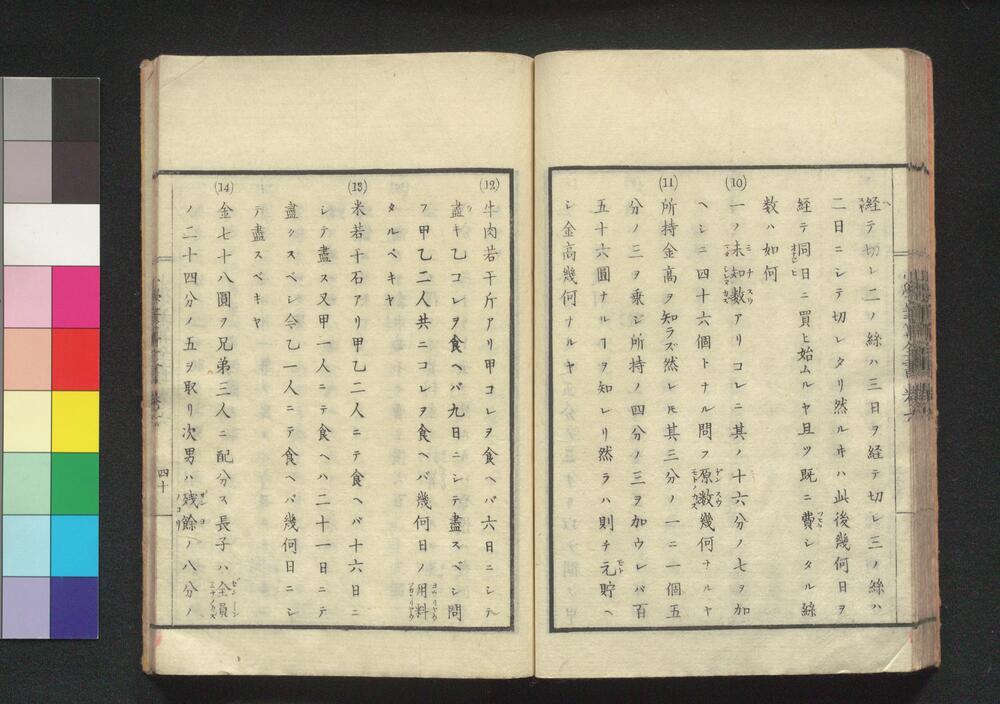 経テ切レ二ノ絲ハ三日ヲ経テ切レ三ノ絲ハ
二日ニシテ切レタリ然ルキハ此後幾何日ヲ
経テ同日ニ買ヒ始ムルヤ且ツ既ニ費シタル絲
数ハ如何
(10) 一ノ未知数アリコレニ其ノ十六分ノ七ヲ加
ヘシニ四十六個トナル問フ原数幾何ナルヤ
(11) 所持金高ヲ知ラズ然レ𪜈其三分ノ一ニ一個五
分ノ三ヲ乗ジ所持ノ四分ノ三ヲ加ウレバ百
五十六圓ナルヿヲ知レリ然ラハ則チ元貯ヘ
シ金高幾何ナルヤ
(12) 牛肉若干斤アリ甲コレヲ食ヘバ六日ニシテ
盡キ乙コレヲ食ヘバ九日ニシテ盡スベシ問
フ甲乙二人共ニコレヲ食ヘバ幾何日ノ用料
タルベキヤ
(13) 米若干石アリ甲乙二人ニテ食ヘバ十六日ニ
シテ盡ス又甲一人ニテ食ヘハ二十一日ニテ
盡クスベシ今乙一人ニテ食ヘバ幾何日ニシ
テ盡スベキヤ
(14) 金七十八圓ヲ兄弟三人ニ配分ス長子ハ全員
ノ二十四分ノ五ヲ取リ次男ハ残餘ノ八分ノ
四十